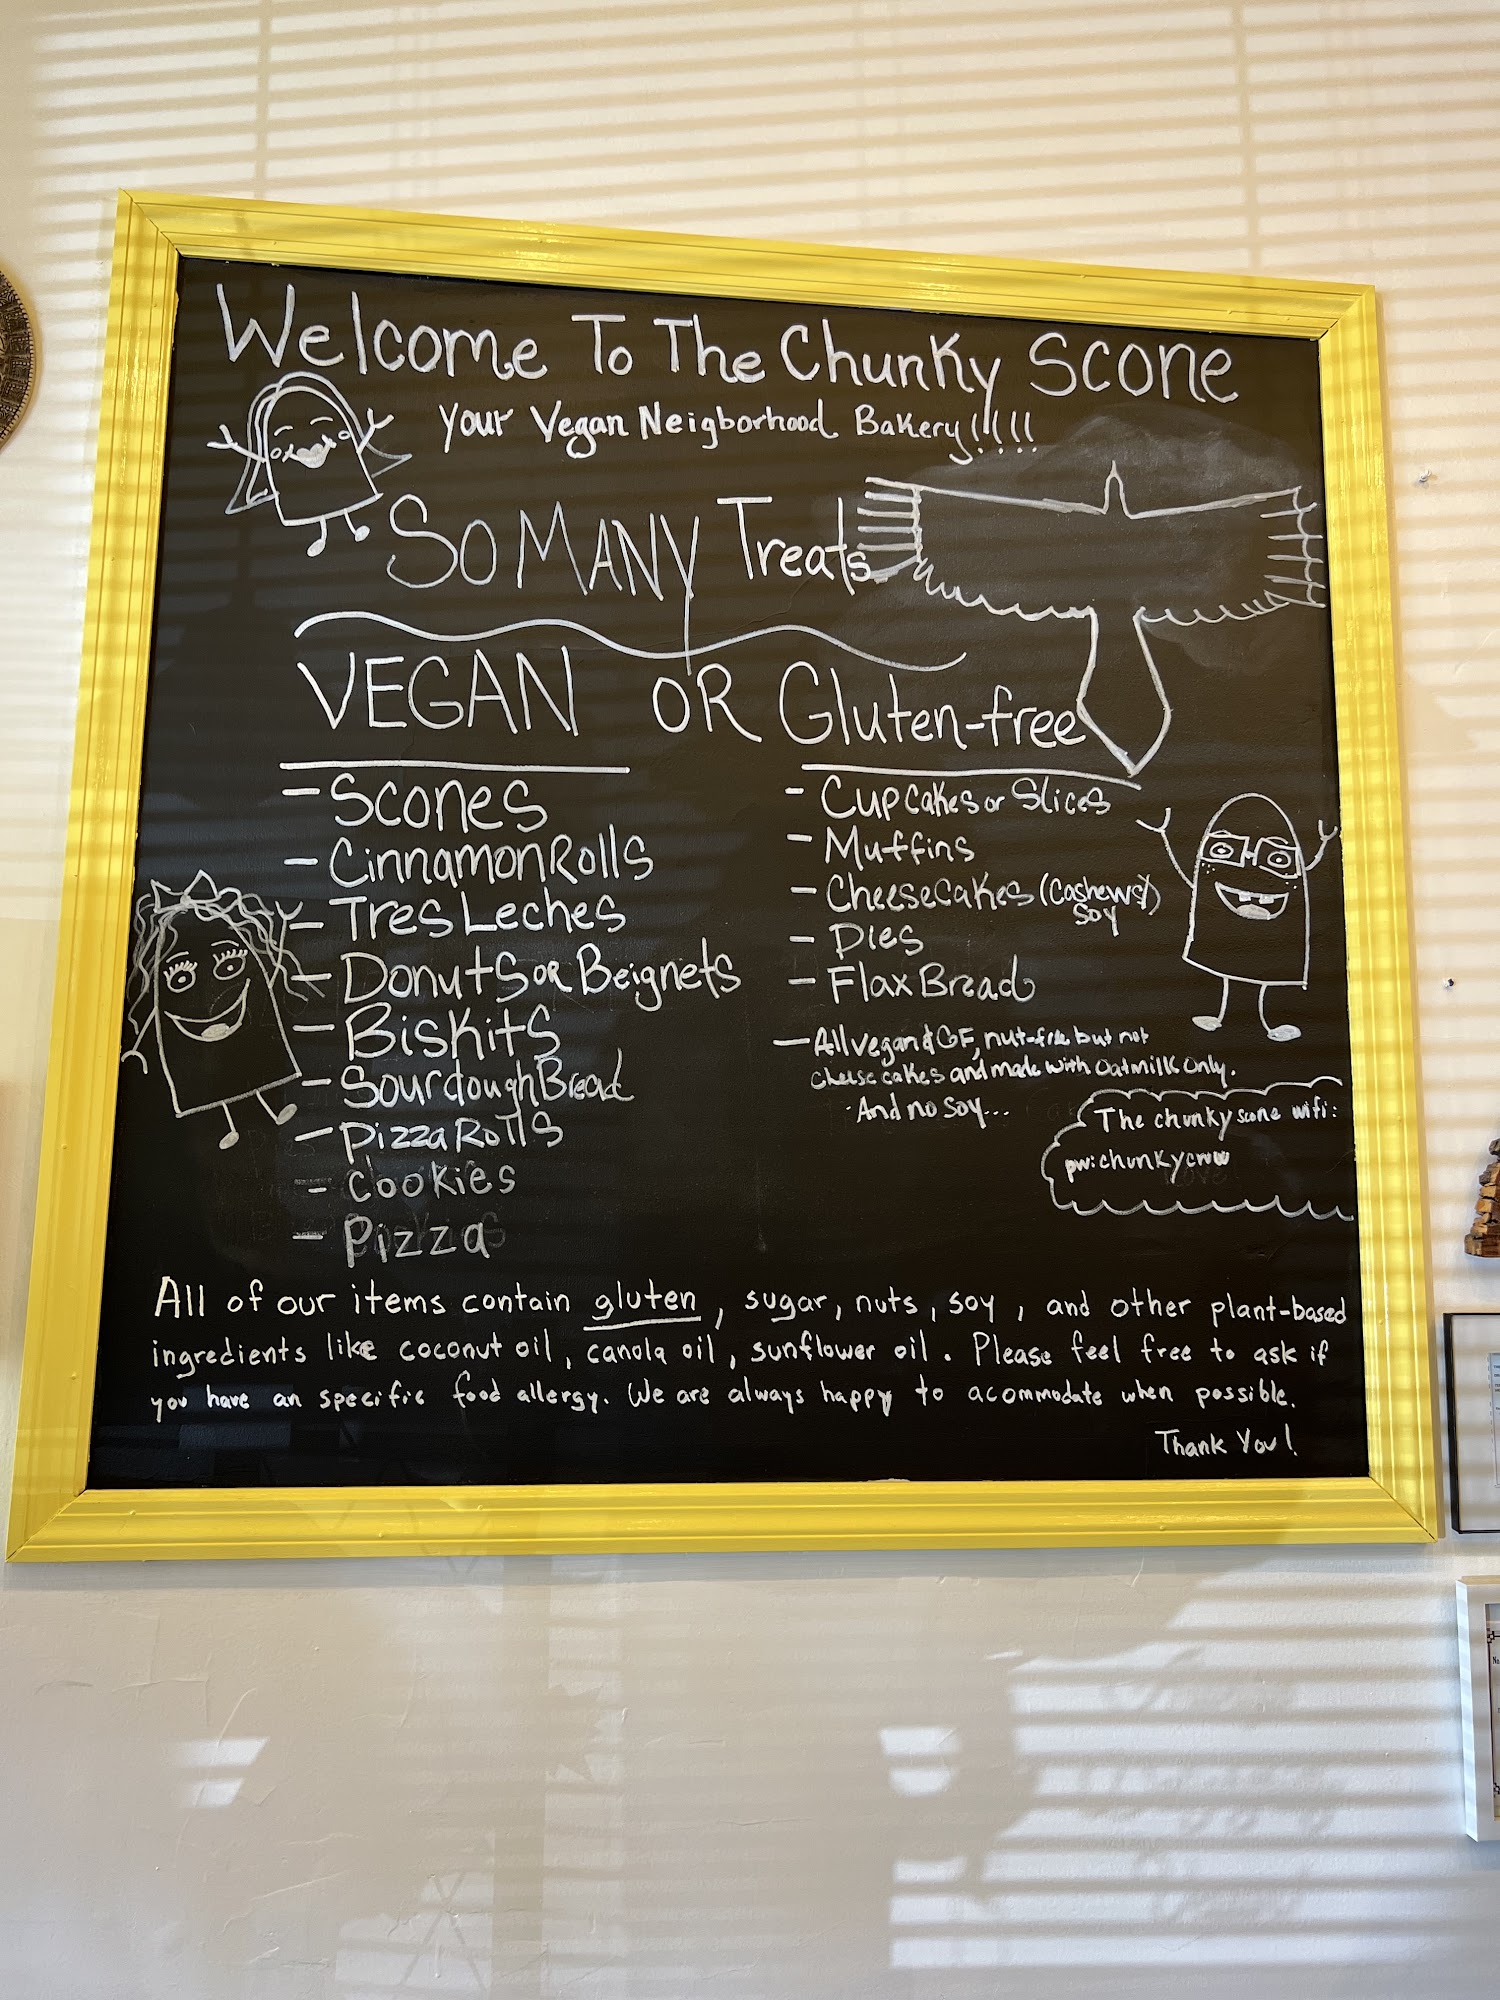 Welcome To The Chunky Scone
Your Vegan Neigborhood Bakery!!!!!
So MANY Treats
VEGAN OR Gluten-free
- Scones
- Cinnamon Rolls
- Tres Leches
- Donuts or Beignets
- Biskits
- Sourdough Bread
- Pizza Rolls
- Cookies
- Pizza
- Cupcakes or Slices
- Muffins
- Cheesecakes (Cashews/)
soy
- Pies
- Flax Bread
- All vegan & GF, nut-free but not
cheesecakes and made with Oatmilk Only.
- And no soy...
The chunky scone wifi:
pw: chunkycrew
All of our items contain gluten, sugar, nuts, soy, and other plant-based
ingredients like coconut oil, canola oil, sunflower oil. Please feel free to ask if
you have an specific food allergy. We are always happy to acommodate when possible.
Thank You!